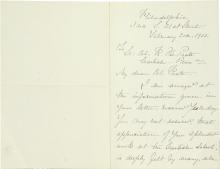 Philadelphia
February 20th, 1902.
To Lt. Col. R. H. Pratt
Carlisle Penn.
My dear Col. Pratt:
I am amazed at
the information given in
your letter received yesterday.
If you may not resign! Great
appreciation of your splendid
work at the Carlisle School,
is deeply felt by many, who